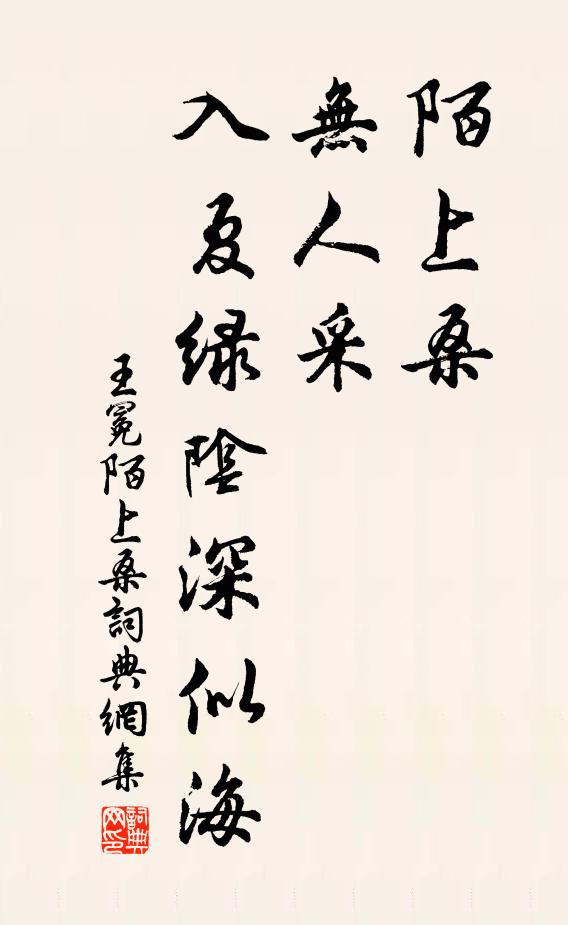 陌上桑
無人采
入夏綠陰深似海
王冕陌上桑詞典網集
詞典網印